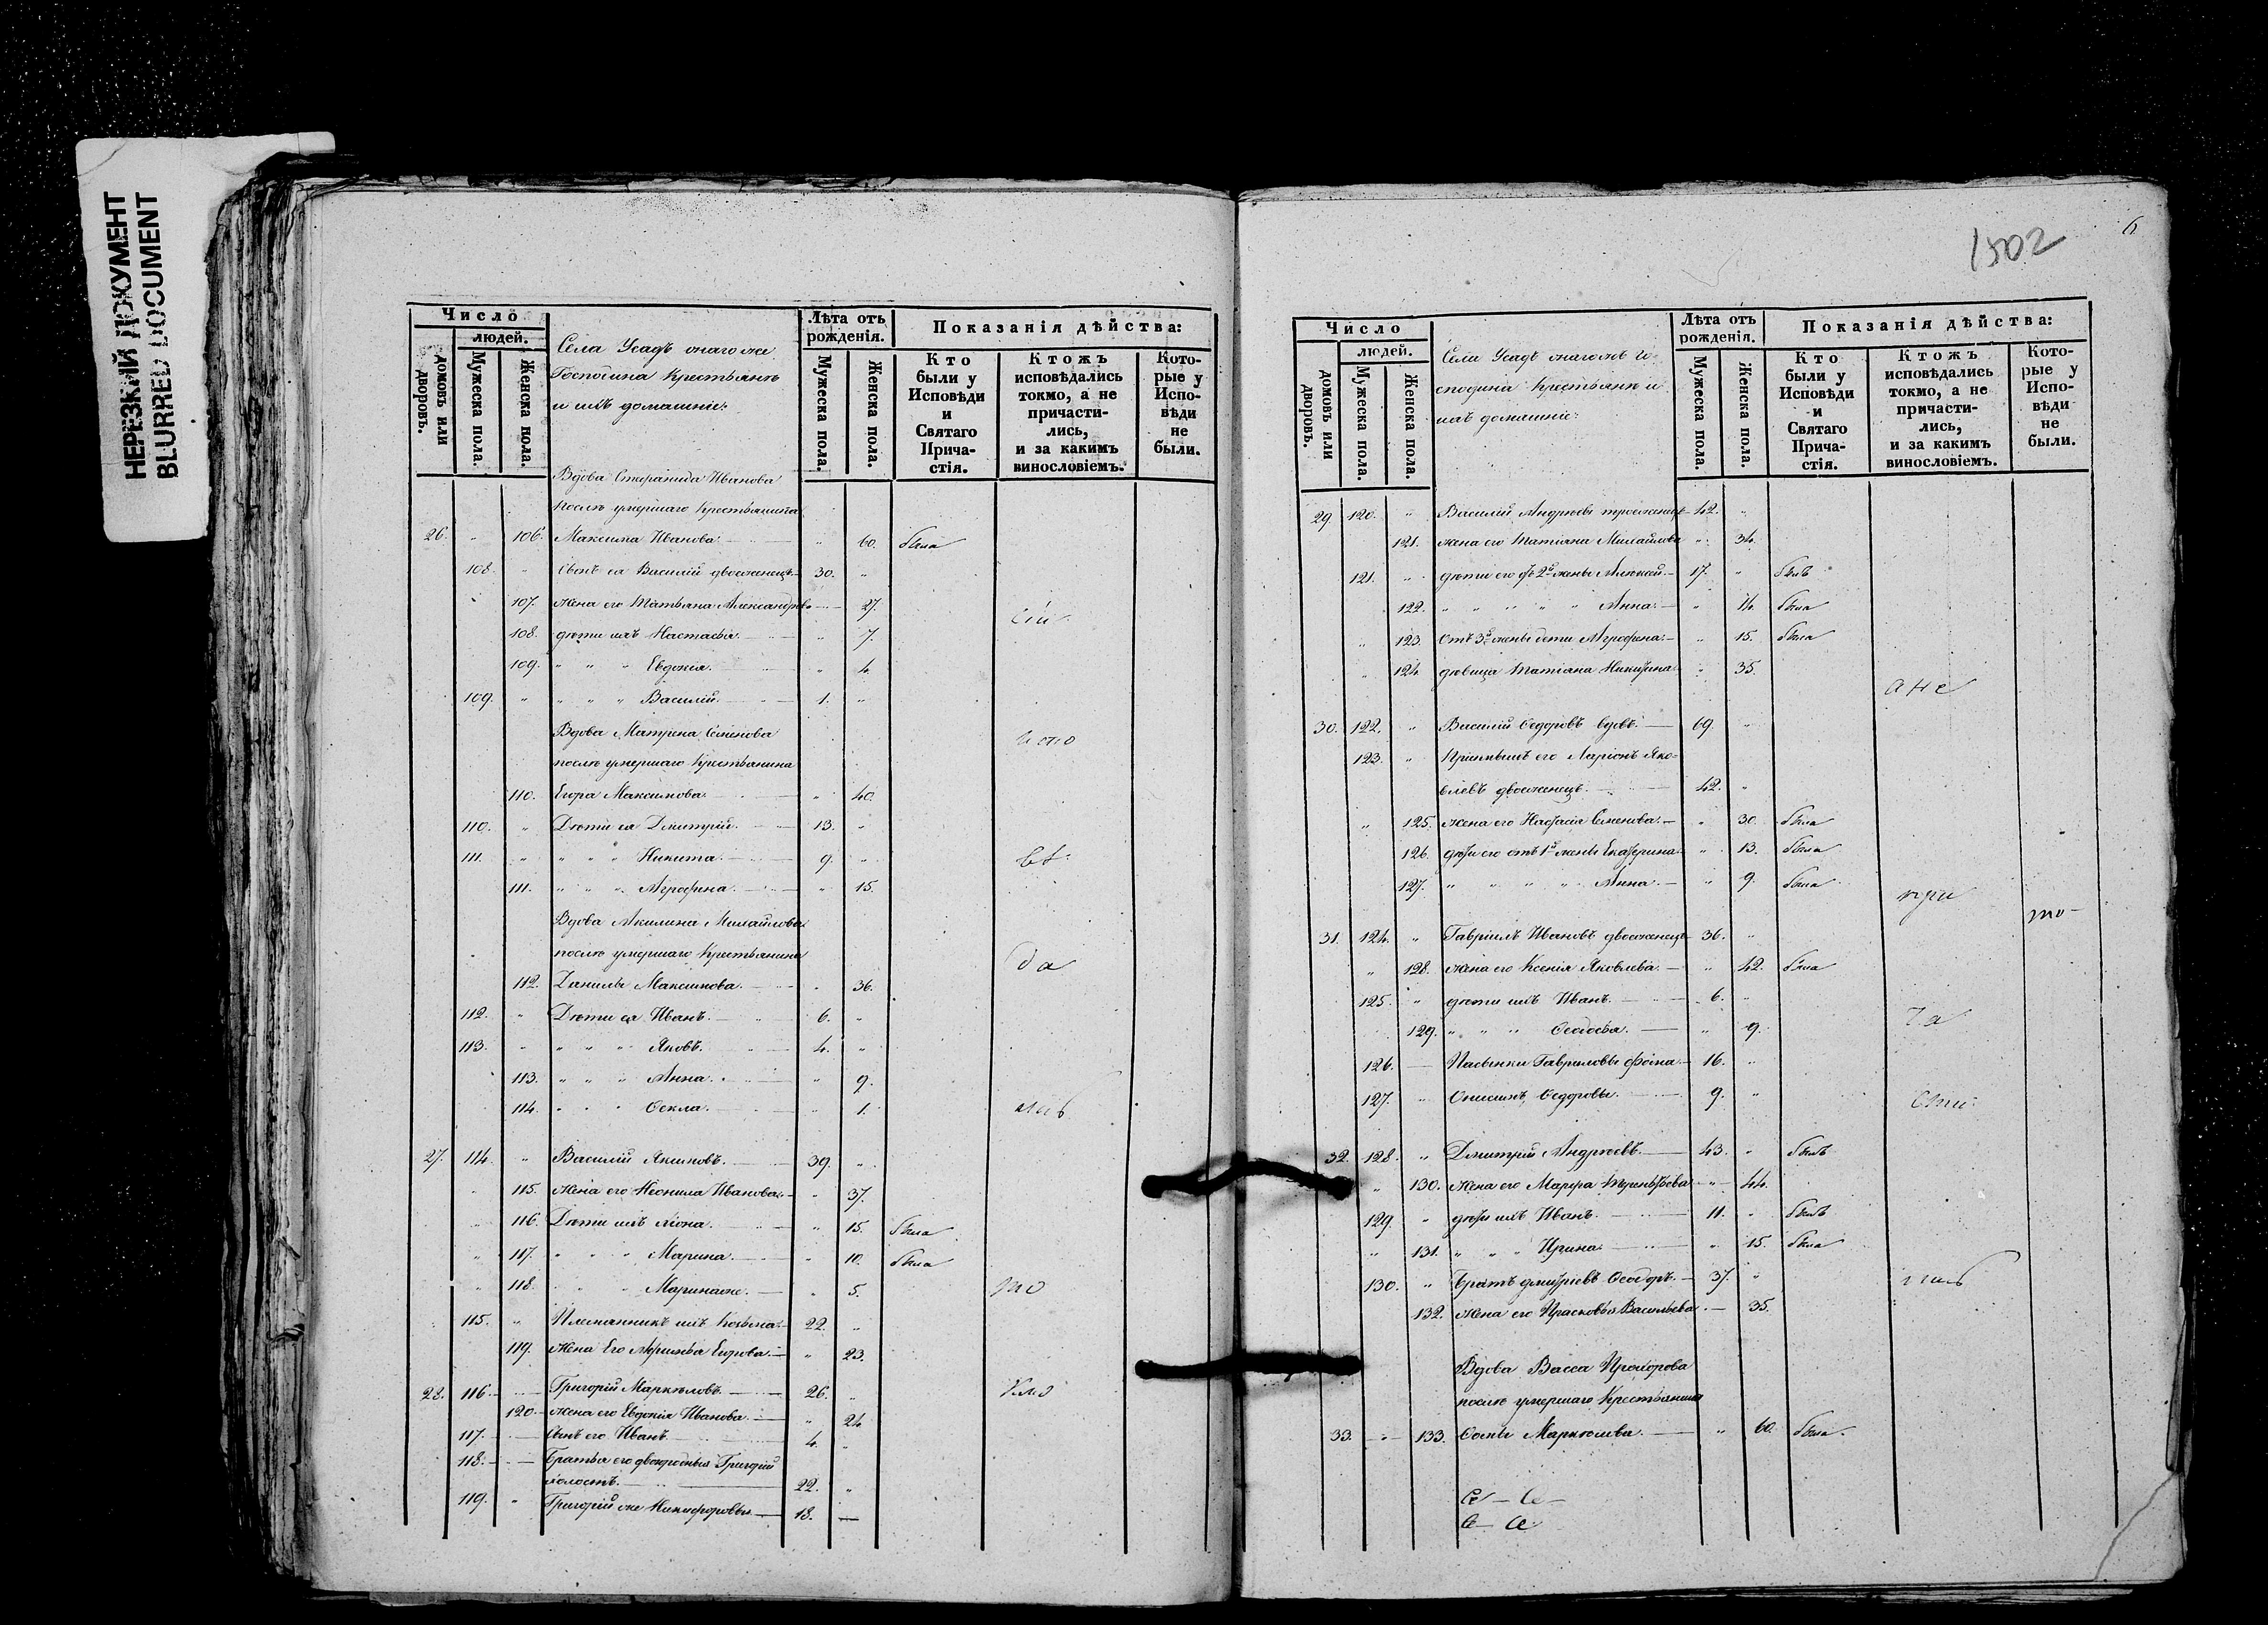 НЕРЕЗКИЙ ДОКУМЕНТ
BLURRED DOCUMENT
Число
людей.
домовъ или дворовъ.
Мужеска пола.
Женска пола.
Села Усадъ онаго же
Господина Крестьянъ
и ихъ домашніе:
Лѣта отъ рожденія.
Мужеска пола.
Женска пола.
Показанія дѣйства:
Кто были у Исповѣди и Святаго Прича- стія.
Ктожъ исповѣдались токмо, а не причасти- лись, и за какимъ винословіемъ.
Кото- рые у Испо- вѣди не были.
Вдова Степанида Иванова
послѣ умершаго Крестьянина
26. " 106. Максима Иванова. " 60. была
108. " Сынъ ея Василій двоеженецъ 30. "
107. жена его Татьяна Александрова 27.
108. дѣти ихъ Настасья. " 7.
109. " " " Евдокія. " 4.
109. " " " " Василій. 1. "
Вдова Матрена Семенова
послѣ умершаго Крестьянина
110. Егора Максимова. " 40.
110. " Дѣти ея Дмитрій. 13. "
111. " " " " Никита. 9. "
111. " " " Агрофена. " 15.
Вдова Акилина Михайлова
послѣ умершаго Крестьянина
112. Данилы Максимова. " 36.
112. " Дѣти ея Иванъ. 6. "
113. " " " " Яковъ. 4. "
113. " " " Анна. " 9.
114. " " " Ѳекла. " 1.
испо
вѣ
да
лись
то
кмо
27. 114. " Василій Якимовъ. 39. "
" 115. Жена его Неонила Иванова. " 37.
" 116. Дѣти ихъ " 15. была
" 117. " " " Марина. " 10. была
" 118. " " " Марина же. " 5.
115. " Племянникъ ихъ Козьма. 22. "
119. Жена Его Афимья Егорова. " 23.
28. 116. Григорій Маркеловъ. 26. "
120. жена его Евдокія Иванова. " 24
117. Сынъ его Иванъ. 4. "
118. Братья его двоюродныя Григорій
холостъ. 22. "
119. " Григорій же Никифоровы 18. —
1502
6
Число
людей.
домовъ или дворовъ.
Мужеска пола.
Женска пола.
Села Усадъ онаго же Го-
сподина Крестьянъ и
ихъ домашніе:
Лѣта отъ рожденія.
Мужеска пола.
Женска пола.
Показанія дѣйства:
Кто были у Исповѣди и Святаго Прича- стія.
Ктожъ исповѣдались токмо, а не причасти- лись, и за какимъ винословіемъ.
Кото- рые у Испо- вѣди не были.
29 120. " Василій Андреевъ троеженецъ 42. "
121. жена его Татіана Михайлова " 34.
121. " дѣти его отъ 2й жены Алексей. 17. " былъ
122. " " " " " Анна. " 14. была
" 123. Отъ 3й жены дѣти Агрофена. " 15. была
" 124. дѣвица Татіана Никитина " 35.
30. 122. " Василій Ѳедоровъ вдовъ. 69. "
123. " Пріемышъ его Ларіонъ Яко=
влевъ двоеженецъ. 42. "
" 125. жена его Настасія Семенова. " 30. была
126. дѣти его отъ 1й жены Екатерина " 13. была
127. " " " " Анна. " 9. была
31. 124. " Гавріилъ Ивановъ двоеженецъ 36. "
" 128. жена его Ксенія Яковлева. " 42. была
125. " дѣти ихъ Иванъ. 6. "
129. " " " Ѳеодосья. " 9.
126. — Пасынки Гавриловы Фома 16. "
127. " Онисимъ Ѳедоровы. 9. "
а не
при
то
ча
сти
лись
32. 128. " Дмитрій Андреевъ. 43. " былъ
" 130. Жена его Марфа Терентьева " 44.
129. " дѣти ихъ Иванъ. 11. " былъ
" 131. " " " Ирина. " 15. была
130. " Братъ дмитріевъ Ѳеодоръ. 37. "
132. Жена его Прасковья Васильева 35.
Вдова Васса Прохорова
послѣ умершаго Крестьянина
33. " 133. Маркелова. " 60. была.